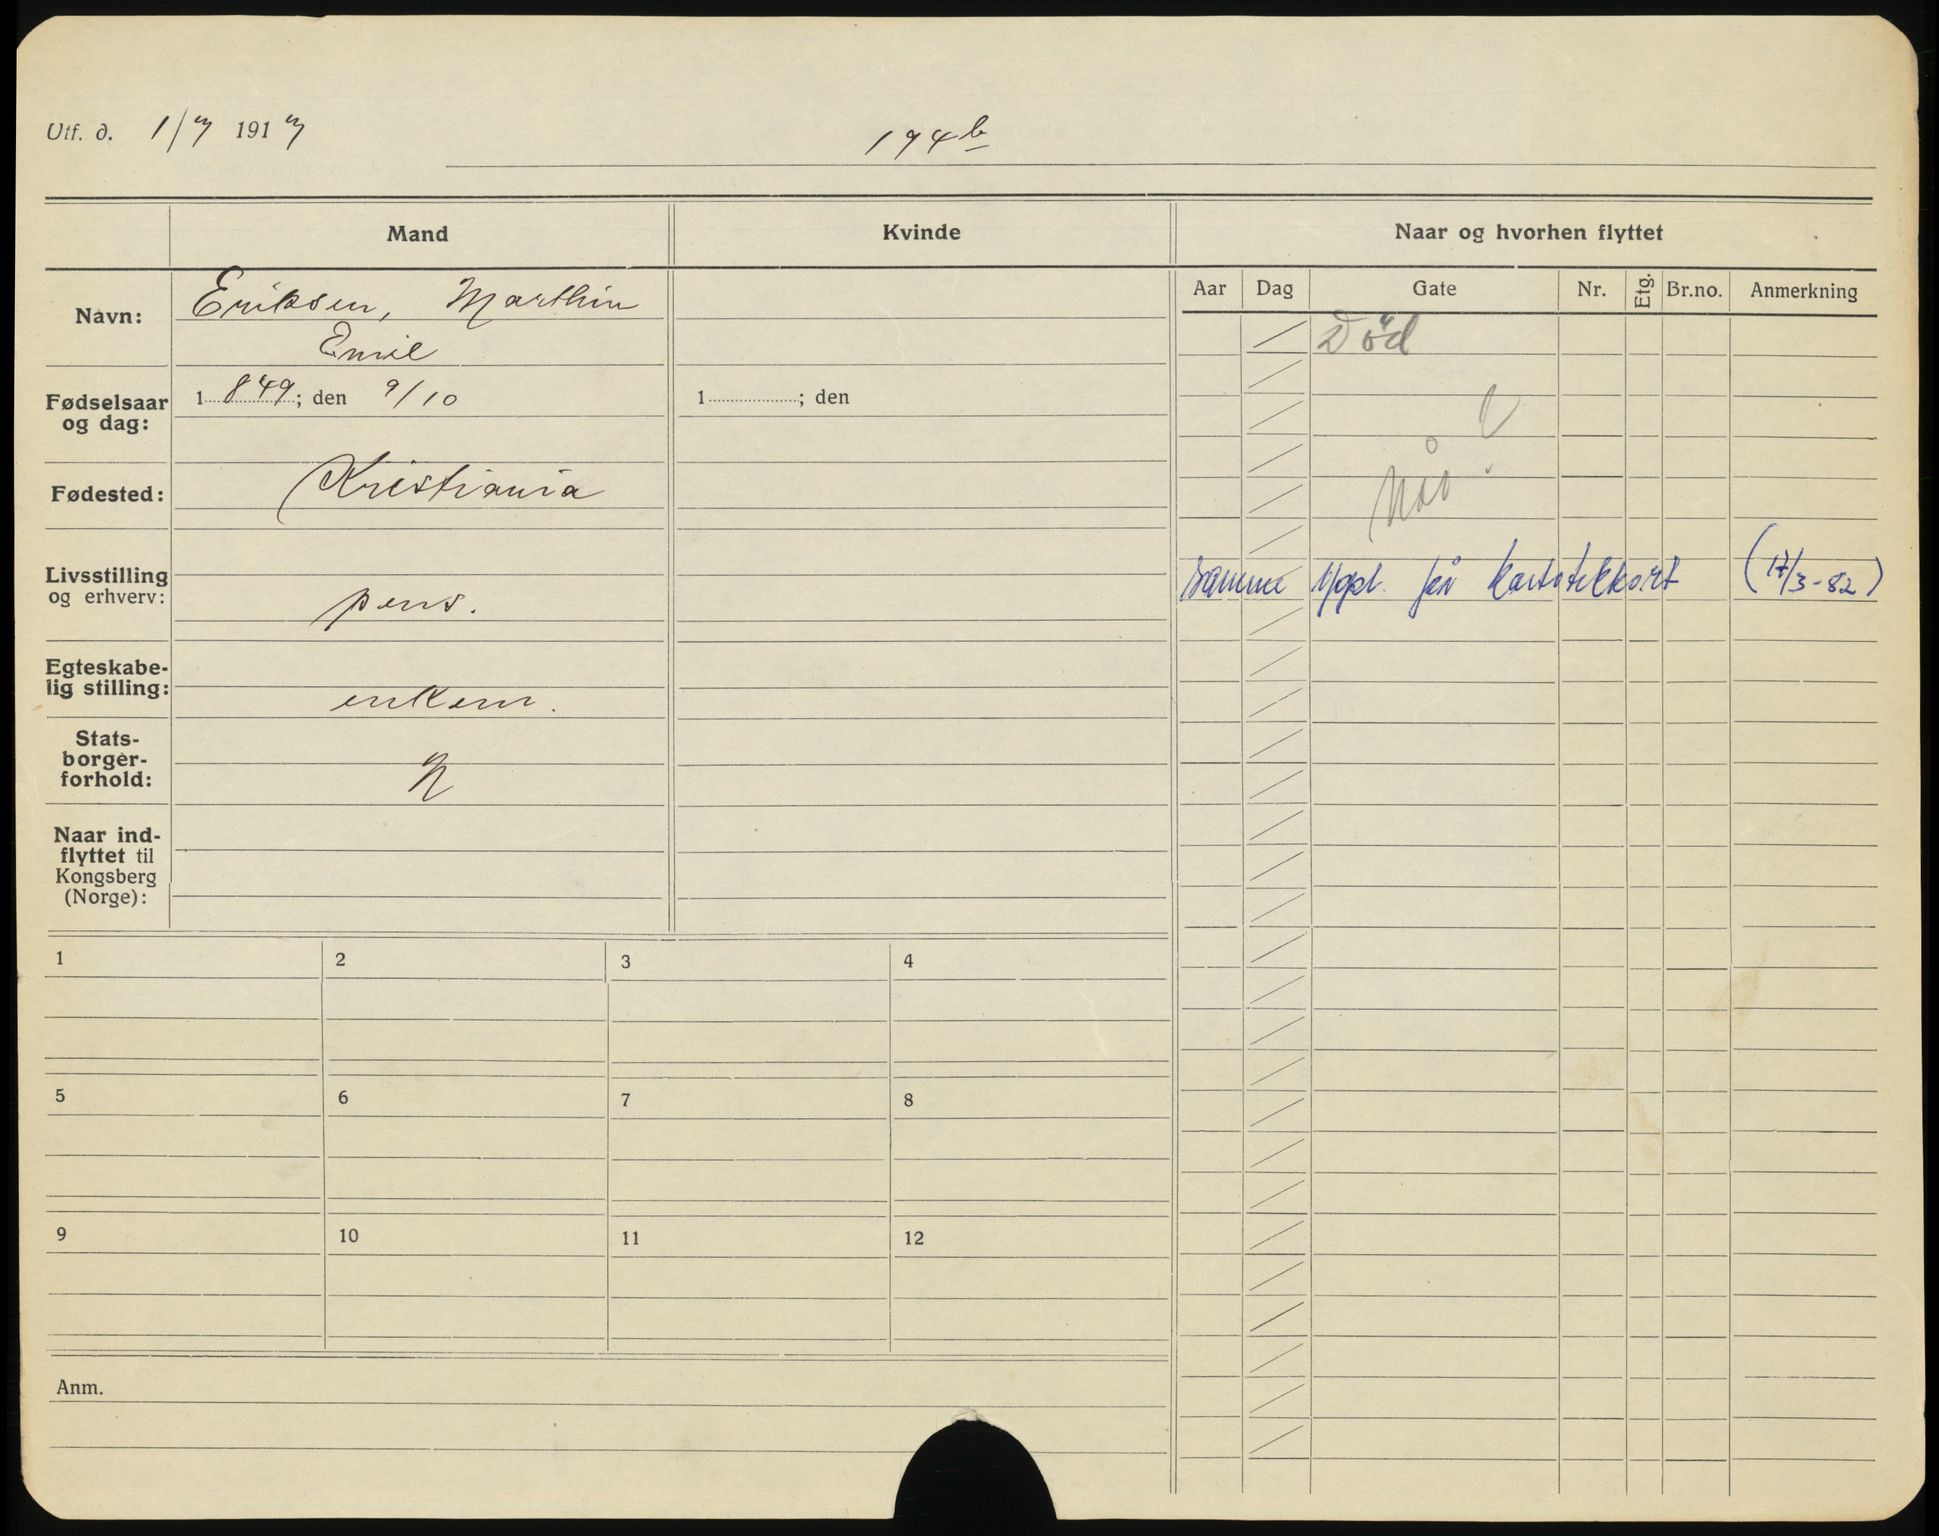 Utf. d. 1/7 1917
194 b
Mand
Kvinde
Naar og hvorhen flyttet
Aar Dag Gate Nr. Etg. Br.no. Anmerkning
Navn: Eriksen, Marthin
Emil
Død
Fødselsaar
og dag: 1849; den 9/10
1 ; den
Når ?
Fødested: Kristiania
samme oppl. på kartotekkort (17/3-82)
Livsstilling
og erhverv: pens.
Egteskabe-
lig stilling: enkem.
Stats-
borger-
forhold: N
Naar ind-
flyttet til
Kongsberg
(Norge):
1 2 3 4
5 6 7 8
9 10 11 12
Anm.